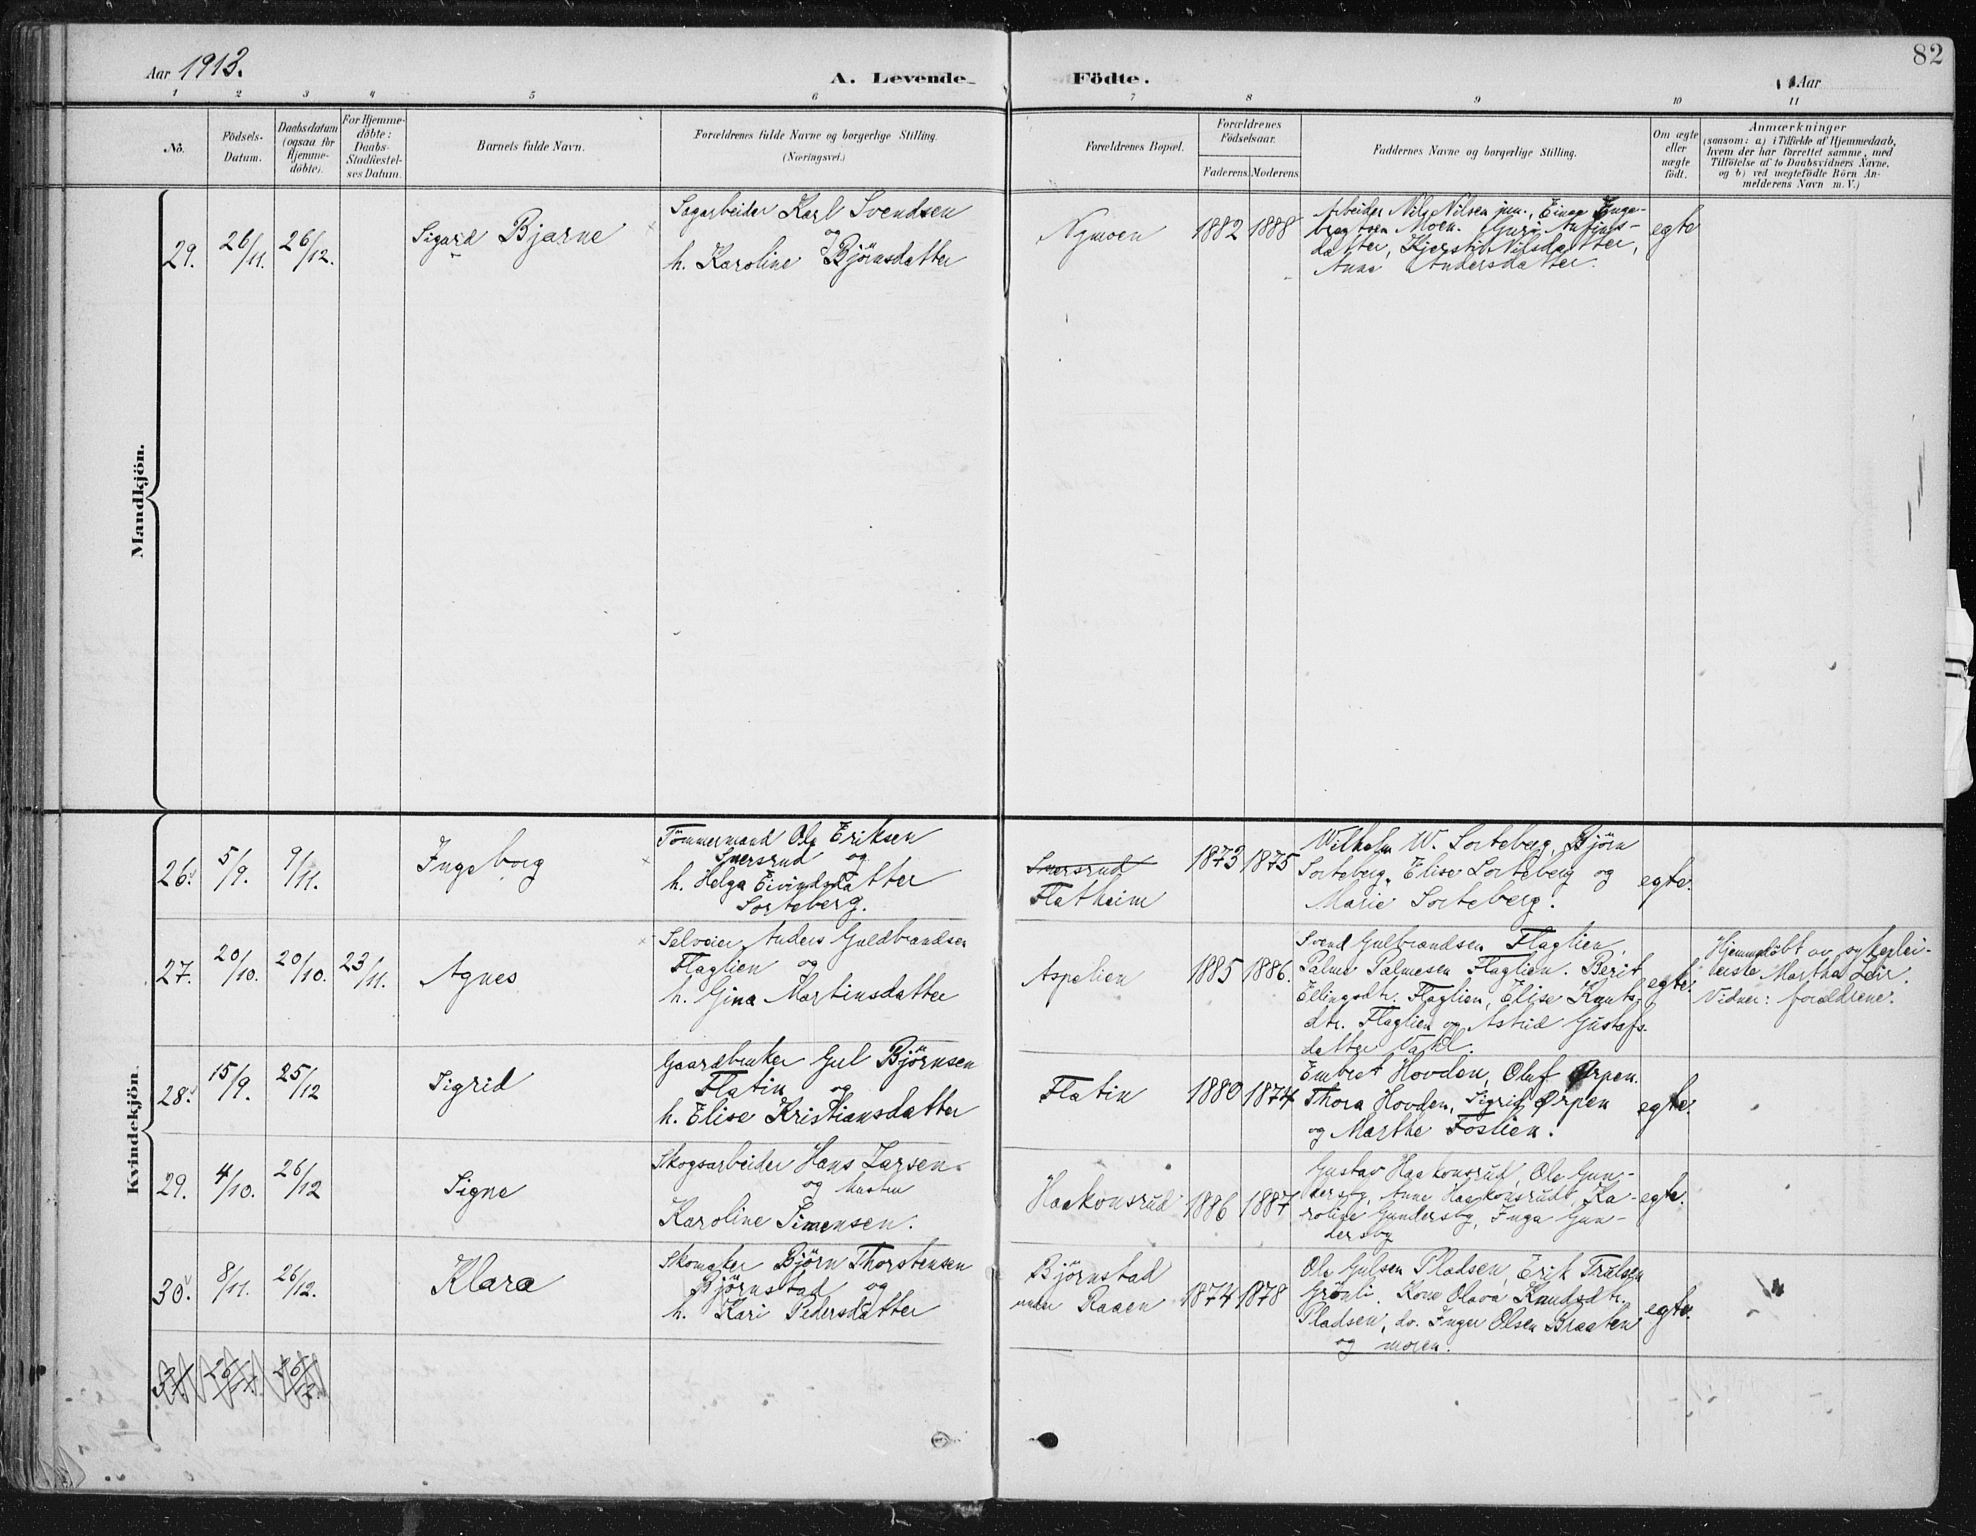 82
Aar 1913.
A. Levende
Födte.
Aar
1 2 3 4 5 6 7 8 9 10 11
No.
Födsels-
Datum.
Daabsdatum
(ogsaa for
Hjemme-
döbte).
For Hjemme-
döbte:
Daabs-
Stadfæstel-
ses Datum.
Barnets fulde Navn.
Forældrenes fulde Navne og borgerlige Stilling.
(Næringsvei.)
Forældrenes Bopæl.
Forældrenes
Födselsaar.
Faderens. Moderens.
Faddernes Navne og borgerlige Stilling.
Om ægte
eller
uægte
födt.
Anmærkninger
(saasom: a) i Tilfælde af Hjemmedaab,
hvem der har forrettet samme, med
Tilföielse af to Daabsvidners Navne,
og b) ved uægtefödte Börn An-
melderens Navn m. V.)
Mandkjön.
29. 26/11. 26/12. Sigurd Bjarne
Sagarbeider Karl Svendsen
og
h. Karoline Bjørnsdatter
Nymoen 1882 1888
Arbeider Nils Nilsen jun., Einar Enge-
bregtsen Moen. Guri Anfinns-
datter, Kjersti Nilsdatter,
Anna Andersdatter.
egte
Kvindekjön.
26. 5/9. 9/11. Ingeborg
Tömmermand Ole Eriksen
Snersrud og
h. Helga Eivindsdatter
Sorteberg.
Snersrud
Flatheim
1873 1875
Wilhelm W. Sorteberg, Bjørn
Sorteberg, Elise Sorteberg og
Marie Sorteberg.
egte.
27. 20/10. 20/10. 23/11. Agnes
Selveier Anders Guldbrandsen
Flaglien og
h. Gina Martinsdatter
Aspelien 1885 1886.
Svend Gulbrandsen Flaglien,
Palme Palmesen Flaglien. Berit
Ellingsdtr. Flaglien, Elise Knuts-
dtr. Flaglien og Astrid Gustafs-
datter
egte.
Hjemmedøbt av sykeplei-
erske Martha Leir.
Vidner: forældrene.
28. 15/9. 25/12 Sigrid
Gaardbruker Gul Bjørnsen
Flatin og
h. Elise Kristiansdatter
Flatin 1880 1874
Embret Hovden, Oluf Ørpen.
Thora Hovden, Sigrid Ørpen
og Marthe Foslien.
egte.
29. 4/10. 26/12 Signe
Skogsarbeider Hans Larsen
og hustru
Karoline Simensen.
Haakonsrud 1886 1887
Gustav Haakonsrud, Ole Gun-
dersby, Anne Haakonsrud, Ka-
roline Gundersby, Inga Gun-
dersby
egte.
30. 8/11. 26/12. Klara
Skomaker Bjørn Thorstensen
Bjørnstad og
h. Kari Pedersdatter
Bjørnstad
under Raaen
1874 1878
Ole Gulsen Pladsen, Erik Tralsen
Grönli. Kone Olava Knudsdtr.
Pladsen, do. Inger Olsen Braaten
og moren.
egte.
31. 26/11. 26/12.